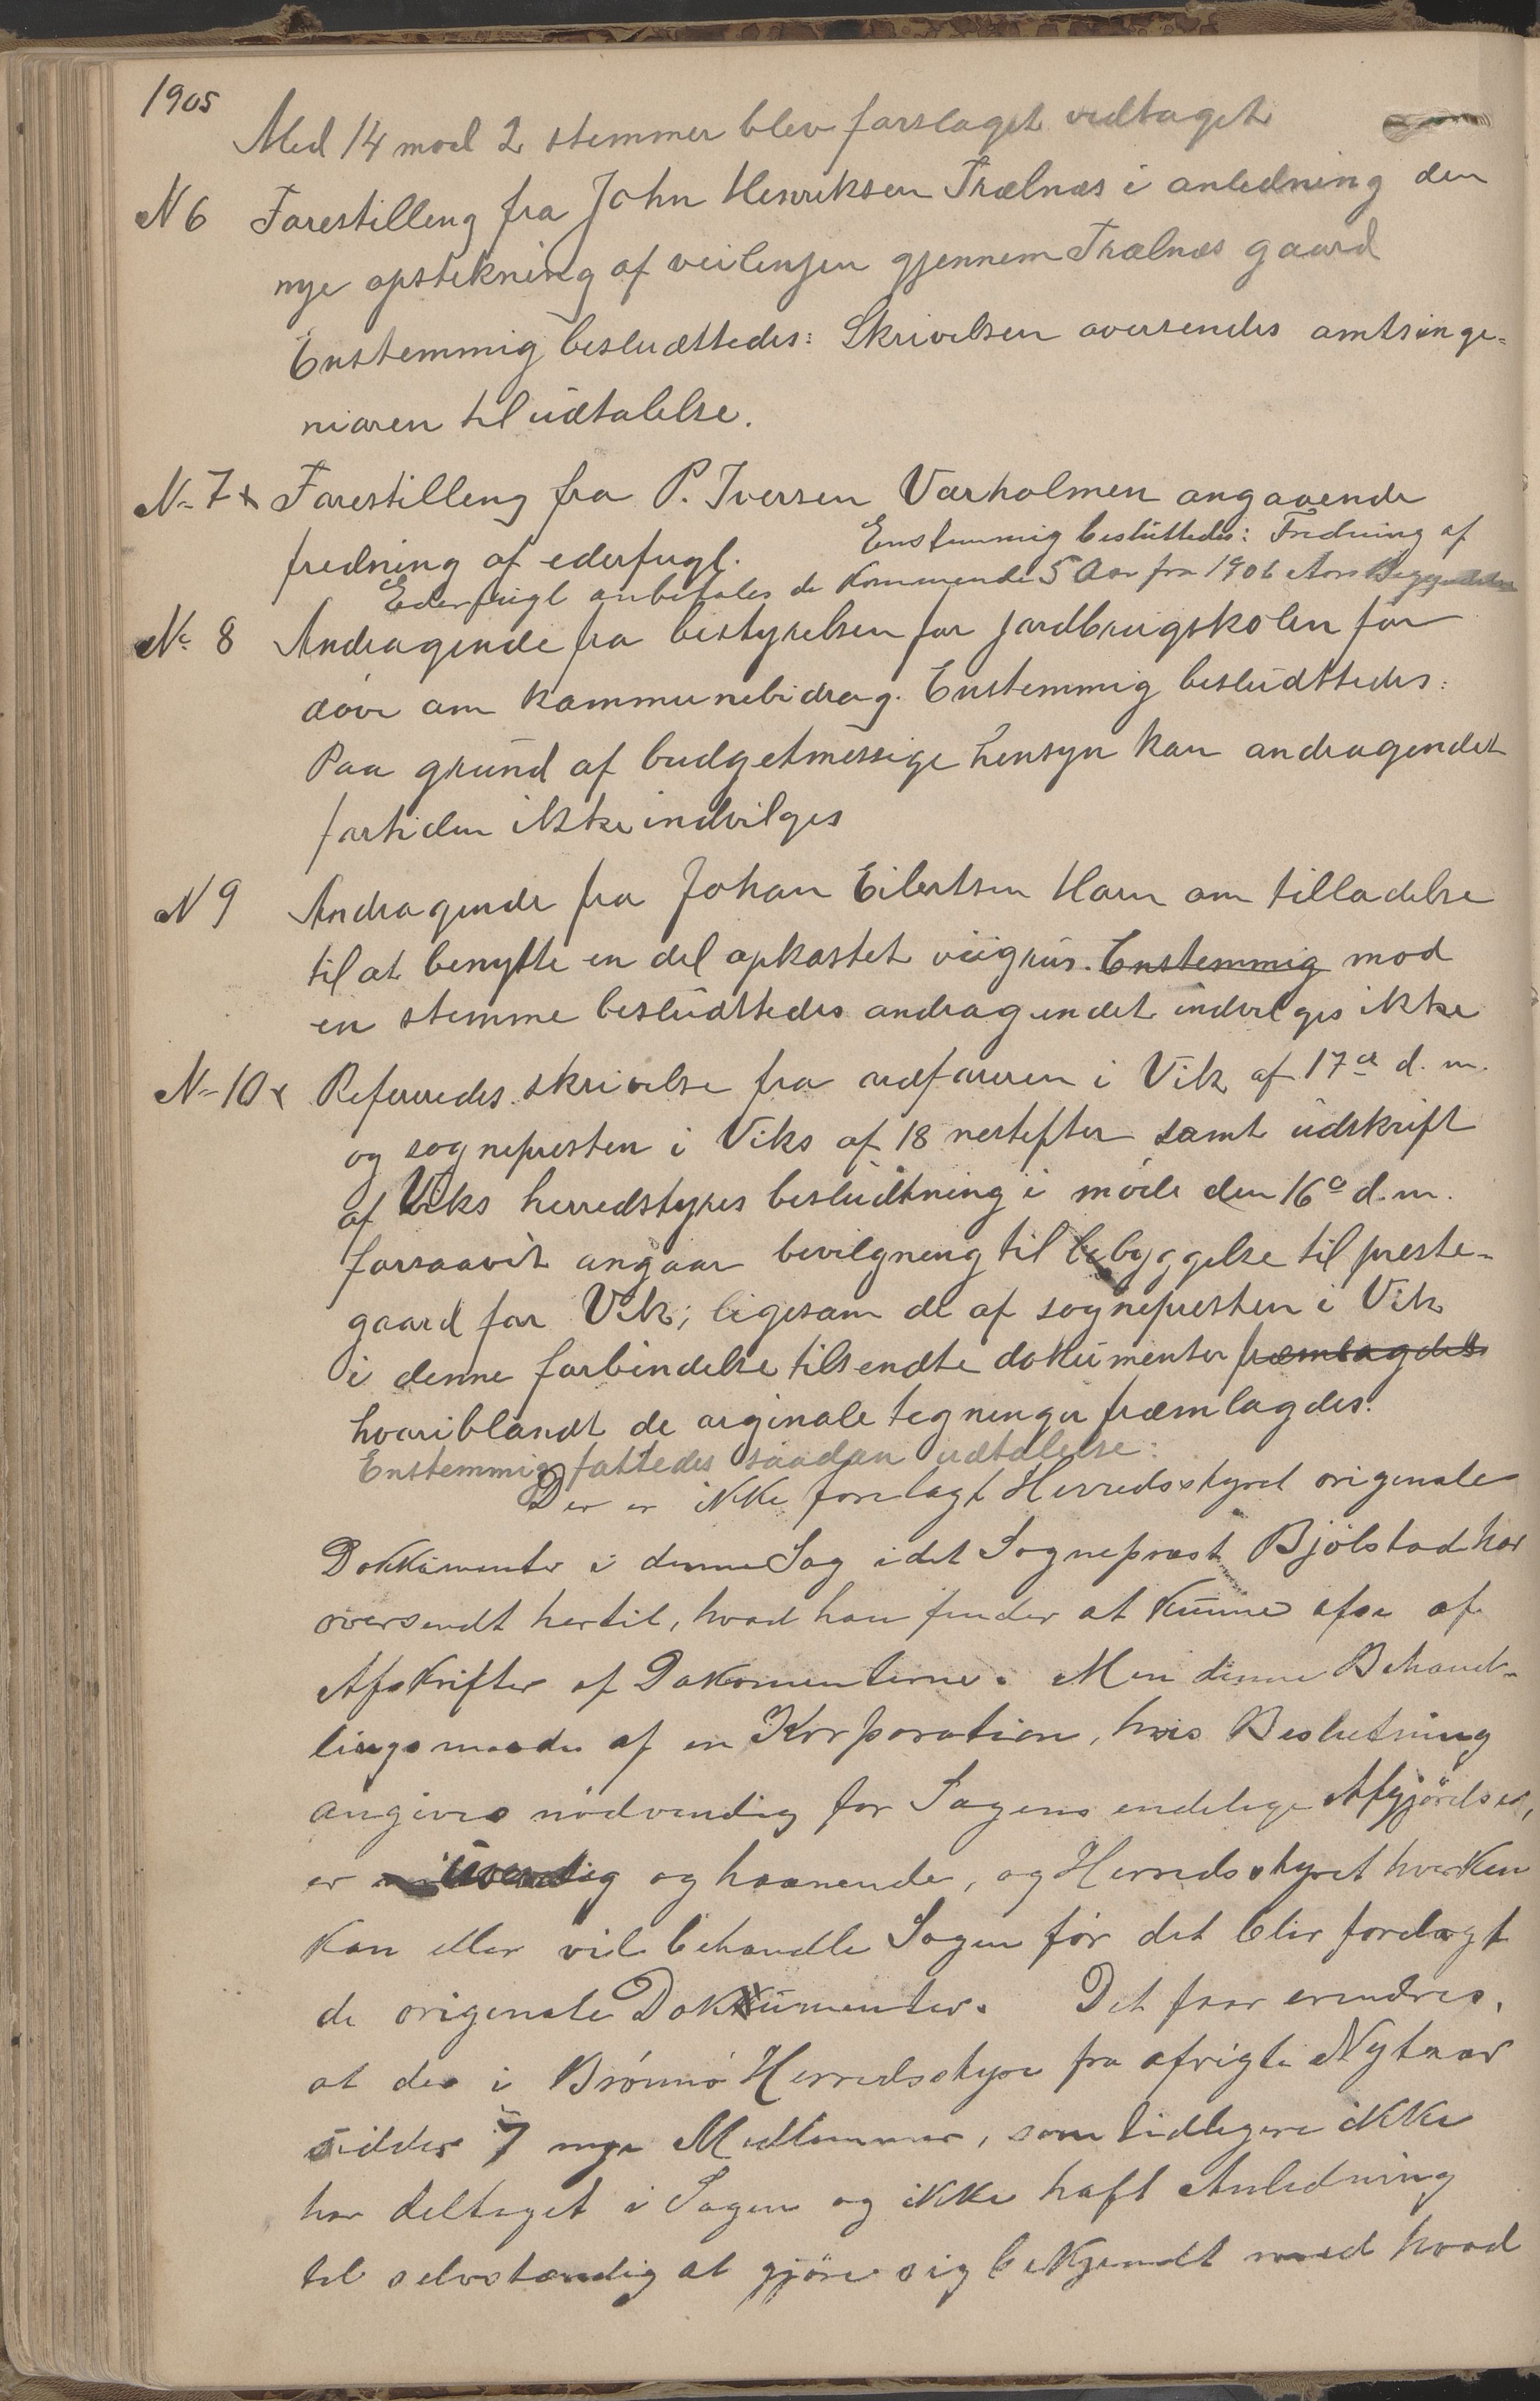 1905
Med 14 mod 2 stemmer blev forslaget vedtaget
N 6 Forestilling fra John Henriksen Trælnæs i anledning den
nye opstikning af veilinjen gjennem Trælnæs gaard
Enstemmig besluttedes: Skrivelsen oversendes amtsinge-
niøren til udtalelse.
N- 7 x Forestilling fra P. Iversen Værholmen angaaende
fredning af ederfugl. Enstemmig besluttedes: Fredning af
Ederfugl anbefales de kommende 5 Aar fra 1906 Aars Begyndelse
N- 8 Andragende fra bestyrelsen for jordbrugskolen for
døve om kommunebidrag. Enstemmig besludttedes:
Paa grund af budgetmessige hensyn kan andragendet
fortiden ikke indvilges
N 9 Andragende fra Johan Eilertsen Horn om tilladelse
til at benytte en del opkastet veigrus. Enstemmig mod
en stemme besludttedes andragendet indvilges ikke
N- 10 x Refereredes skrivelse fra ordføreren i Vik af 17de d. m.
og sognepresten i Viks af 18 nestefter samt udskrift
af Viks herredstyres besludtning i møde den 16de d. m.
forsaavit angaar bevilgning til bebyggelse til preste-
gaard for Vik; ligesom de af sognepresten i Vik
i denne forbindelse tilsendte dokumenter fræmlagdes
hvoriblandt de orginale tegninger fræmlagdes.
Enstemmig fattedes saadan udtalelse:
Der er ikke forelagt Herredsstyret originale
Dokkumenter i denne Sag idet Sogneprest Bjölstad har
oversendt hertil, hvad han finder at kunne afse af
Afskrifter af Dokumenterne. Men denne Behand-
lingsmaade af en Korporation, hvis Beslutning
angives nödvendig for Sagens endelige Afgjörelse,
er uværdig og haanende, og Herredsstyret hverken
kan eller vil behandle Sagen för det blir forelagt
de originale Dokkumenter. Det faar erindres,
at der i Brönnö Herredsstyre fra afvigte Nytaar
sidder 7 nye Medlemmer, som tidligere ikke
har deltaget i Sagen og ikke haft Anledning
til selvstændig at gjöre sig bekjendt med hvad